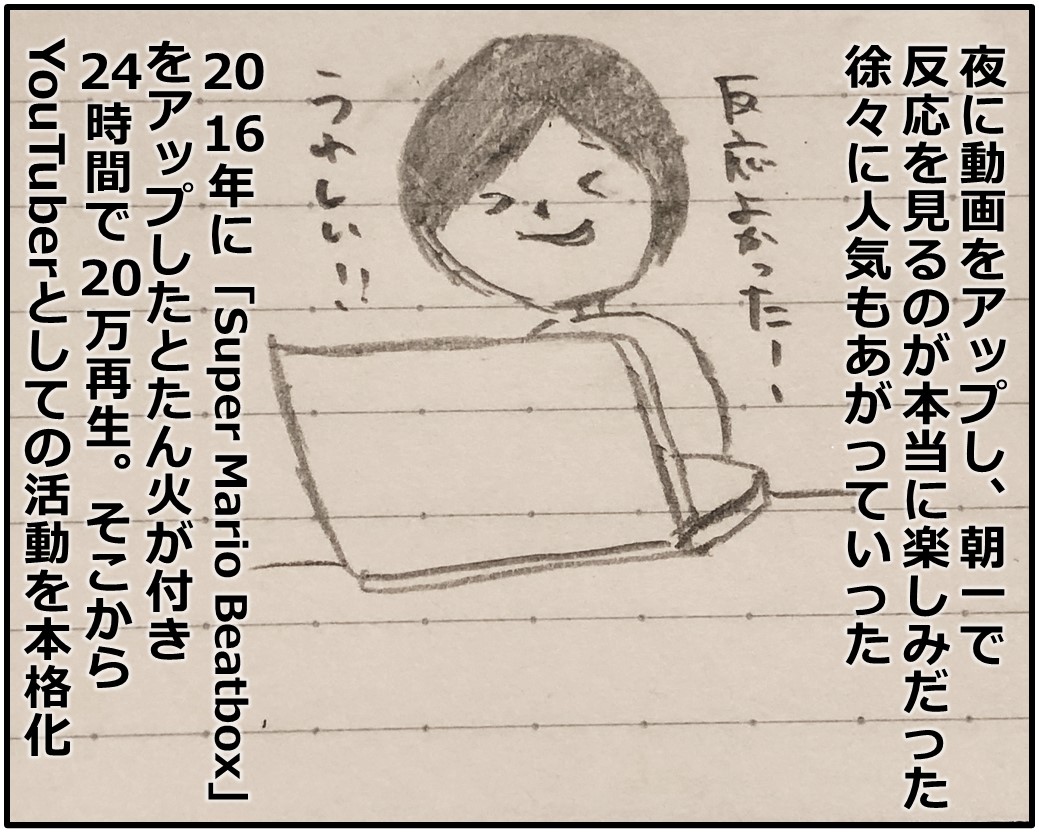 夜に動画をアップし、朝一で
反応を見るのが本当に楽しみだった
徐々に人気もあがっていった
反応よかったー
うれしい!!
2016年に「Super Mario Beatbox」
をアップしたとたん火が付き
24時間で20万再生。そこから
YouTuberとしての活動を本格化